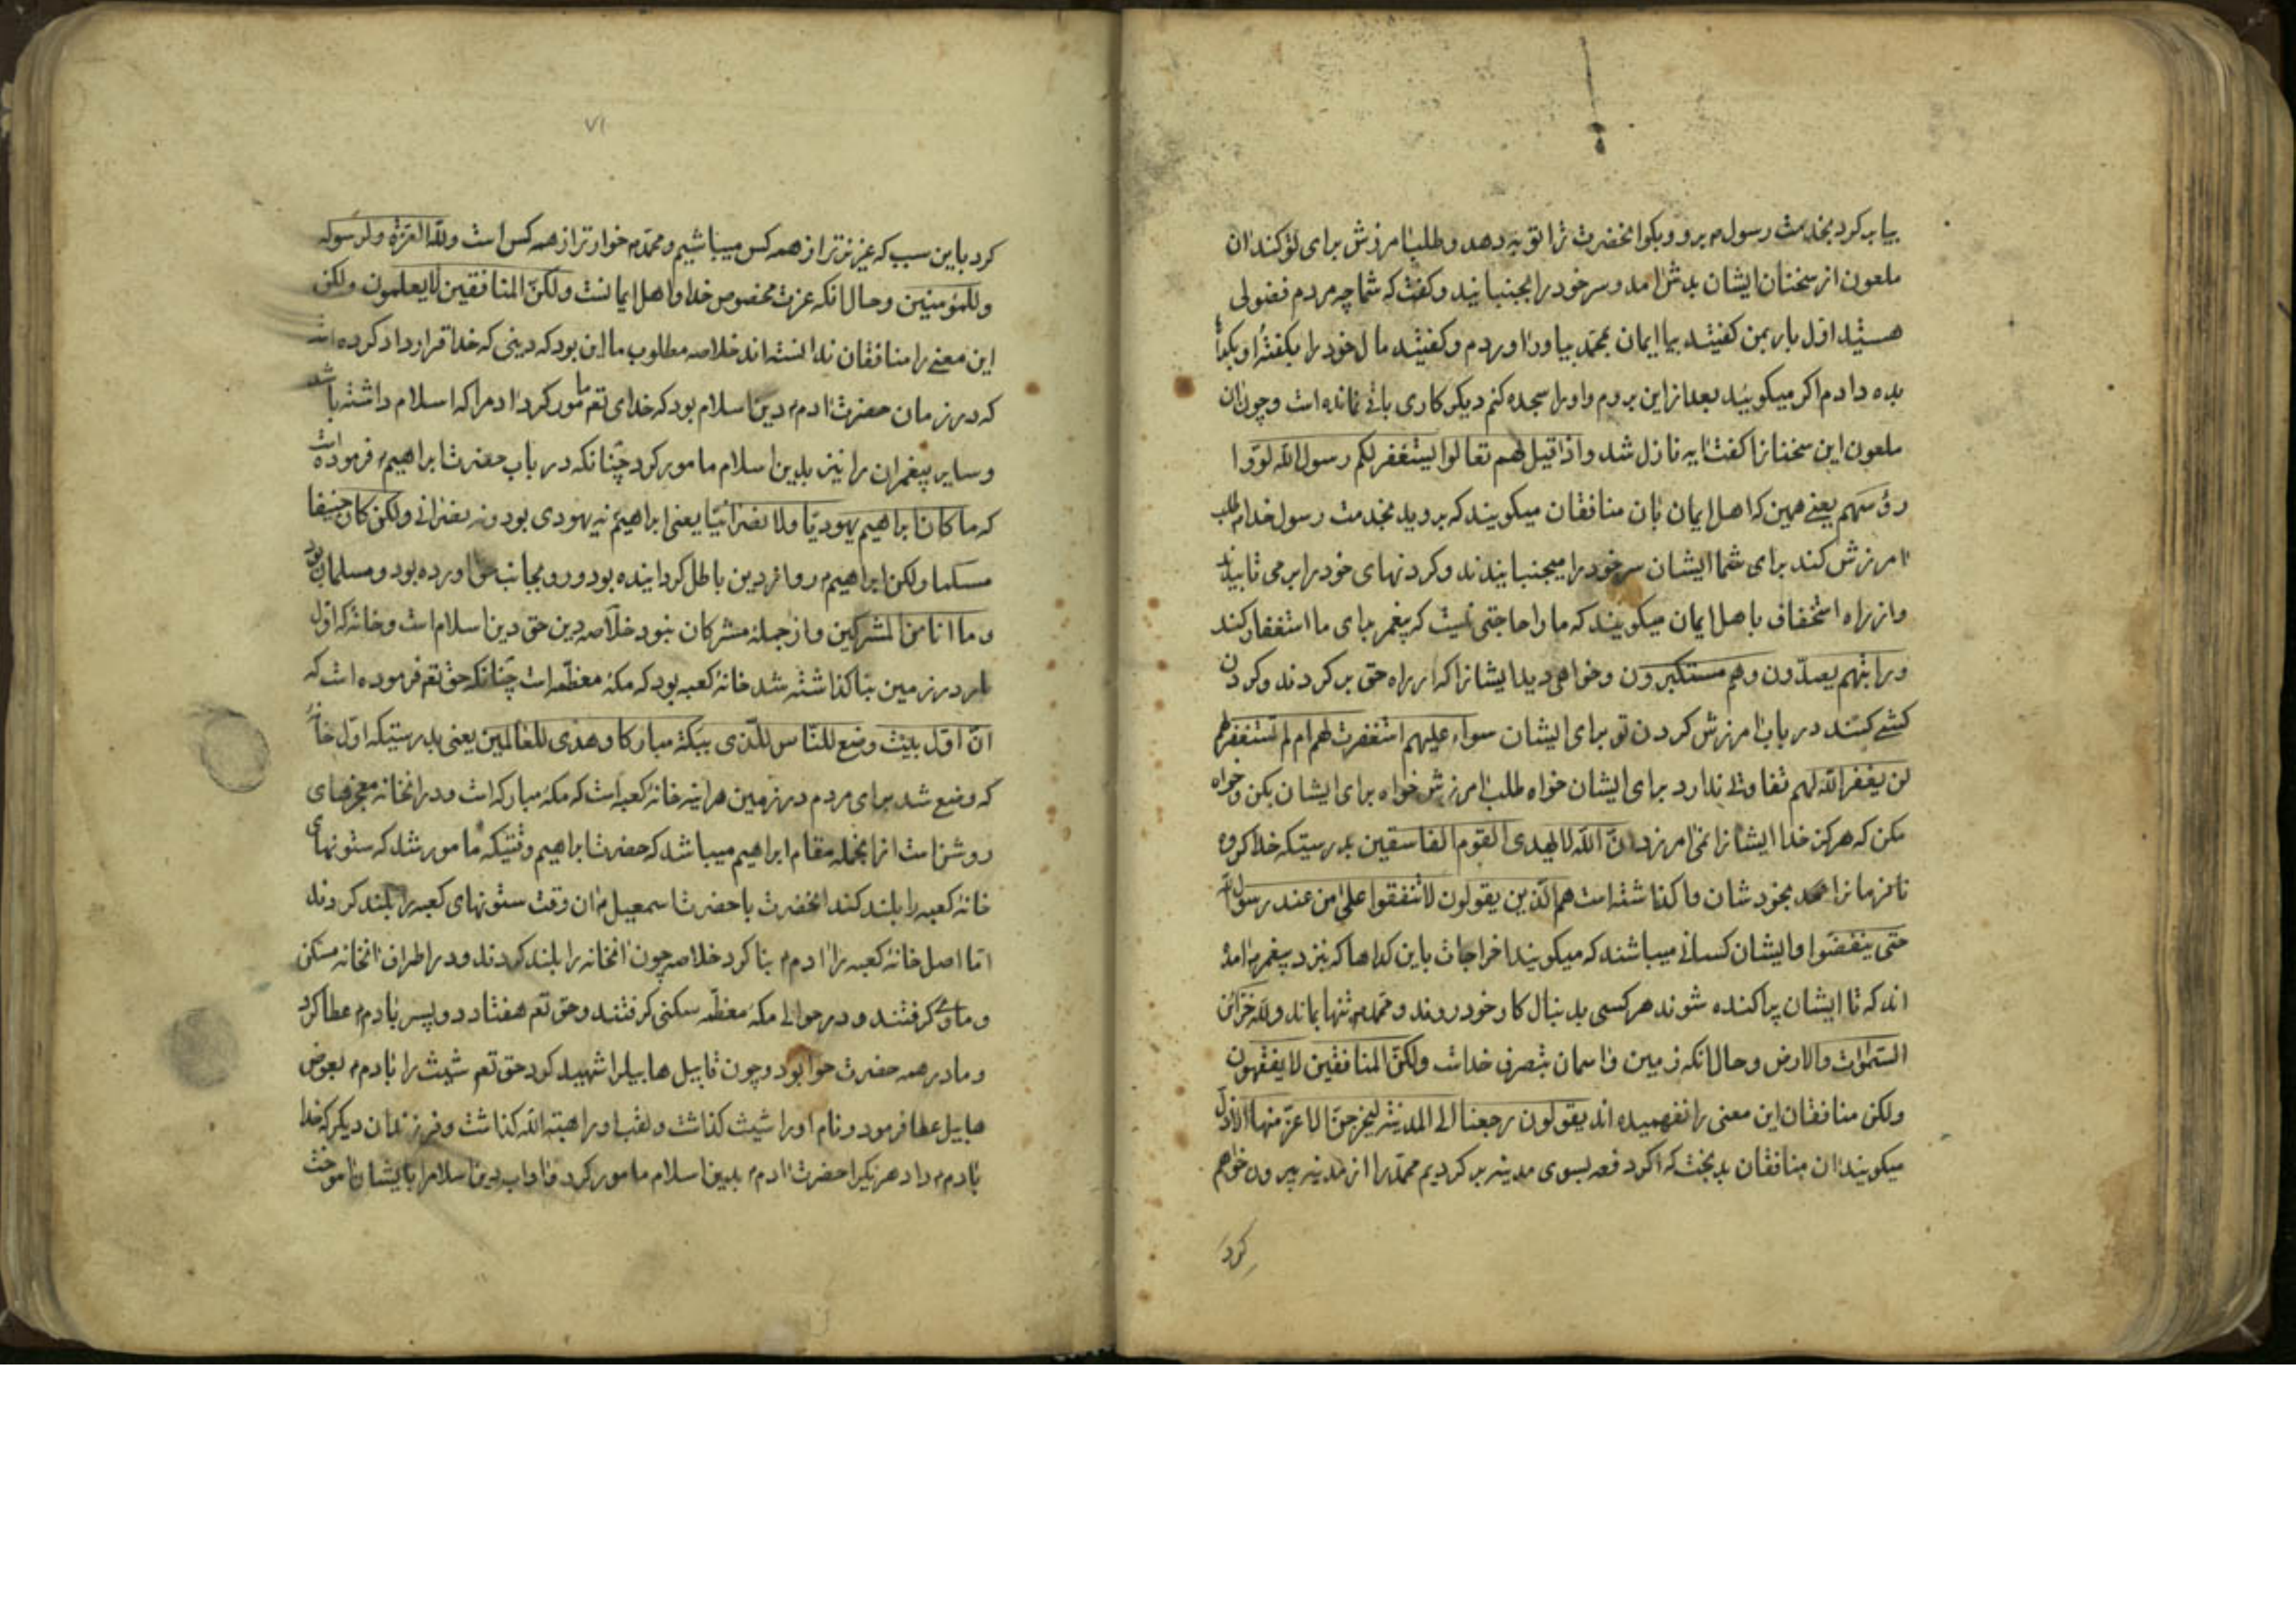 بیاب کرد بخدمت رسول م برو و بکو انحضرت ترا توبه دهد و طلب امرزش برای تو کند ان
ملعون از سخنان ایشان بدش امد و سر خود را بجنبانید و کفت که شما چه مردم فضولی
هستید اول بار بمن کفتید بیا ایمان بمحمد بیاور اوردم و کفتید مال خود را بکفته او
بده دادم اکر میکویید بعد از این بروم و او را سجده کنم دیکر کاری باقی نمانده است و چون ان
ملعون این سخنانرا کفت ایه نازل شد و اذا قیل لهم تعالوا یستغفر لکم رسول الله لووا
رؤسهم یعنی همین که اهل ایمان بان منافقان میکویند که بروید بخدمت رسول خدا م طلب
امرزش کند برای شما ایشان سر خود را میجنبانیدند و کردنهای خود را بر می تابیدند
و از راه استخفاف باهل ایمان میکویند که ما را حاجتی نیست که پیغمبر برای ما استغفار کند
ورایتهم یصدون وهم مستکبرون و خواهی دید ایشانرا که از راه حق بر کردند و کردن
کشی کنند در باب امرزش کردن تو برای ایشان سواء علیهم استغفرت لهم ام لم تستغفر لهم
لن یغفر الله لهم تفاوتی ندارد برای ایشان خواه طلب امرزش خواه برای ایشان بکن وخواه
مکن که هرکز خدا ایشانرا نمی امرزد ان الله لا یهدی القوم الفاسقین بدرستیکه خدا کروه
نافرمانرا بخودشان واکذاشته است هم الذین یقولون لا تنفقوا علی من عند رسول الله
حتی ینفضوا و ایشان کسانی میباشند که میکویند اخراجات باین کداها که نزد پیغمبر م امده
اند که تا ایشان پراکنده شوند هر کسی بدنبال کار خود روند و محمد م تنها بماند ولله خزائن
السموات والارض و حال انکه زمین و اسمان بتصرف خداست ولکن المنافقین لا یفقهون
ولکن منافقان این معنی را نفهمیده اند یقولون رجعنا الی المدینة لیخرجن الاعز منها الاذل
میکویند ان منافقان بدبخت که اکر دفعه بسوی مدینه بر کردیم محمد را از مدینه بیرون خواهم
کرد
۷۱
کرد باین سبب که عزیزتر از همه کس میباشیم و محمد م خوارتر از همه کس است ولله العزة ولرسوله
وللمؤمنین و حال انکه عزت مخصوص خدا و اهل ایمانست ولکن المنافقین لا یعلمون ولکن
این معنی را منافقان ندانسته اند خلاصه مطلوب ما این بود که دینی که خدا قرارداد کرده است
که در زمان حضرت ادم م دین اسلام بود که خدای تعم مامور کرد ادم را که اسلام داشته باشد
و سایر پیغمبران را نیز بدین اسلام مامور کرد چنانکه در باب حضرت ابراهیم م فرموده است
که ما کان ابراهیم یهودیا ولا نصرانیا یعنی ابراهیم م نه یهودی بود و نه نصرانی ولکن کان حنیفا
مسلما ولکن ابراهیم م رو از دین باطل کردانیده بود و رو بجانب حق اورده بود و مسلمان بود
و ما انا من المشرکین و از جمله مشرکان نبود خلاصه دین حق دین اسلام است و خانه که اول
بار در زمین بنا کذاشته شد خانه کعبه بود که مکه معظمه است چنانکه حق تعم فرموده است که
ان اول بیت وضع للناس للذی ببکة مبارکا وهدی للعالمین یعنی بدرستیکه اول خانه
که وضع شد برای مردم در زمین هراینه خانه کعبه است که مکه مبارکه است و در انخانه معجزهای
روشن است از انجمله مقام ابراهیم میباشد که حضرت ابراهیم وقتیکه مامور شد که ستونهای
خانه کعبه را بلند کند انحضرت با حضرت اسمعیل م ان وقت ستونهای کعبه را بلند کردند
اما اصل خانه کعبه را ادم م بنا کرد خلاصه چون انخانه را بلند کردند و در اطراف انخانه مسکن
و ماوی کرفتند و در حوالی مکه معظمه سکنی کرفتند و حق تعم هفتاد دو پسر بادم م عطا کرد
و مادر همه حضرت حوا بود و چون قابیل هابیل را شهید کرد حق تعم شیث را بادم م بعوض
هابیل عطا فرمود و نام او را شیث کذاشت و لقب او را هبة الله کذاشت و فرزندان دیکر که خدا
بادم م داد هر یکیرا حضرت ادم م بدین اسلام مامور کرد و اداب دین اسلام را بایشان اموخت